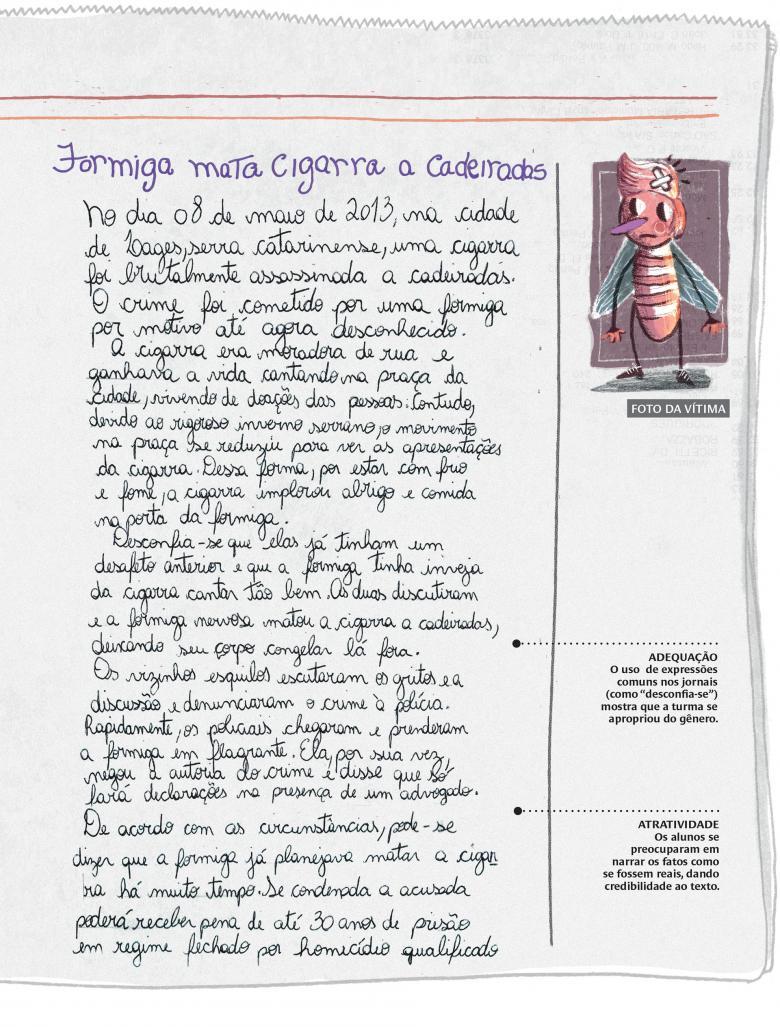 Formiga mata Cigarra a Cadeiradas
No dia 08 de maio de 2013, na cidade
de Lages, serra catarinense, uma cigarra
foi brutalmente assassinada a cadeiradas.
O crime foi cometido por uma formiga
por motivo até agora desconhecido.
A cigarra era moradora de rua e
ganhava a vida cantando na praça da
cidade, vivendo de doações das pessoas. Contudo,
devido ao rigoroso inverno serrano, o movimento
na praça se reduziu para ver as apresentações
da cigarra. Dessa forma, por estar com frio
e fome, a cigarra implorou abrigo e comida
na porta da formiga.
Desconfia-se que elas já tinham um
desafeto anterior e que a formiga tinha inveja
da cigarra cantar tão bem. As duas discutiram
e a formiga nervosa matou a cigarra a cadeiradas,
deixando seu corpo congelar lá fora.
Os vizinhos esquilos escutaram os gritos e a
discussão e denunciaram o crime à polícia.
Rapidamente, os policiais chegaram e prenderam
a formiga em flagrante. Ela, por sua vez,
negou a autoria do crime e disse que só
fará declarações na presença de um advogado.
De acordo com as circunstâncias, pode-se
dizer que a formiga já planejava matar a cigar
ra há muito tempo. Se condenada a acusada
poderá receber pena de até 30 anos de prisão
em regime fechado por homicídio qualificado
FOTO DA VÍTIMA
ADEQUAÇÃO
O uso de expressões
comuns nos jornais
(como "desconfia-se")
mostra que a turma se
apropriou do gênero.
ATRATIVIDADE
Os alunos se
preocuparam em
narrar os fatos como
se fossem reais, dando
credibilidade ao texto.